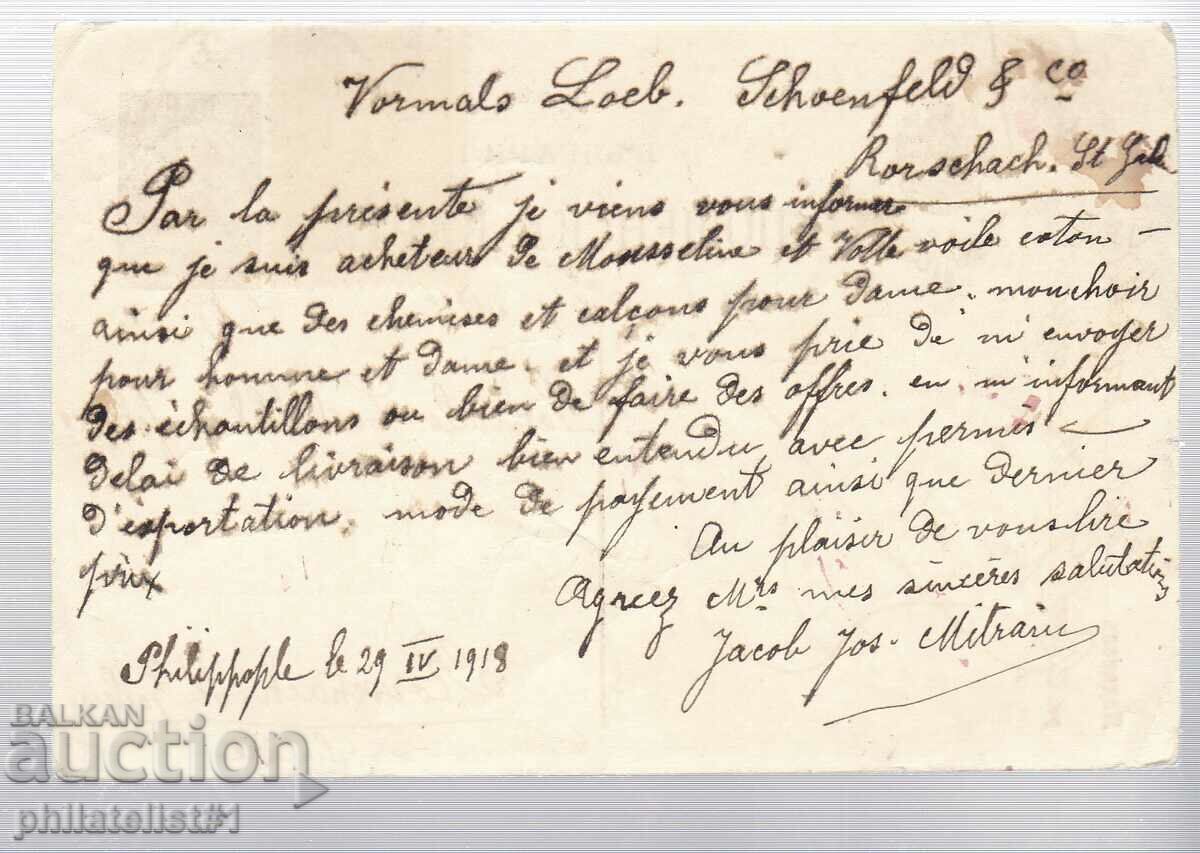 Vormals Loeb. Schoenfeld & Co
Rorschach. St
Par la présente je viens vous informer
que je suis acheteur de Mousseline et voile coton –
ainsi que des chemises et calçons pour dame. mouchoir
pour homme et dame. et je vous prie de m'envoyer
des échantillons ou bien de faire des offres. en m'informant
delai de livraison bien entendu avec permis
d'exportation. mode de payement ainsi que dernier
prix
Au plaisir de vous lire
Agreez Mrs mes sincères salutations
Jacob Jos. Mitrani
Philippople le 29 IV 1918
BALKAN
auction
philatelist#1